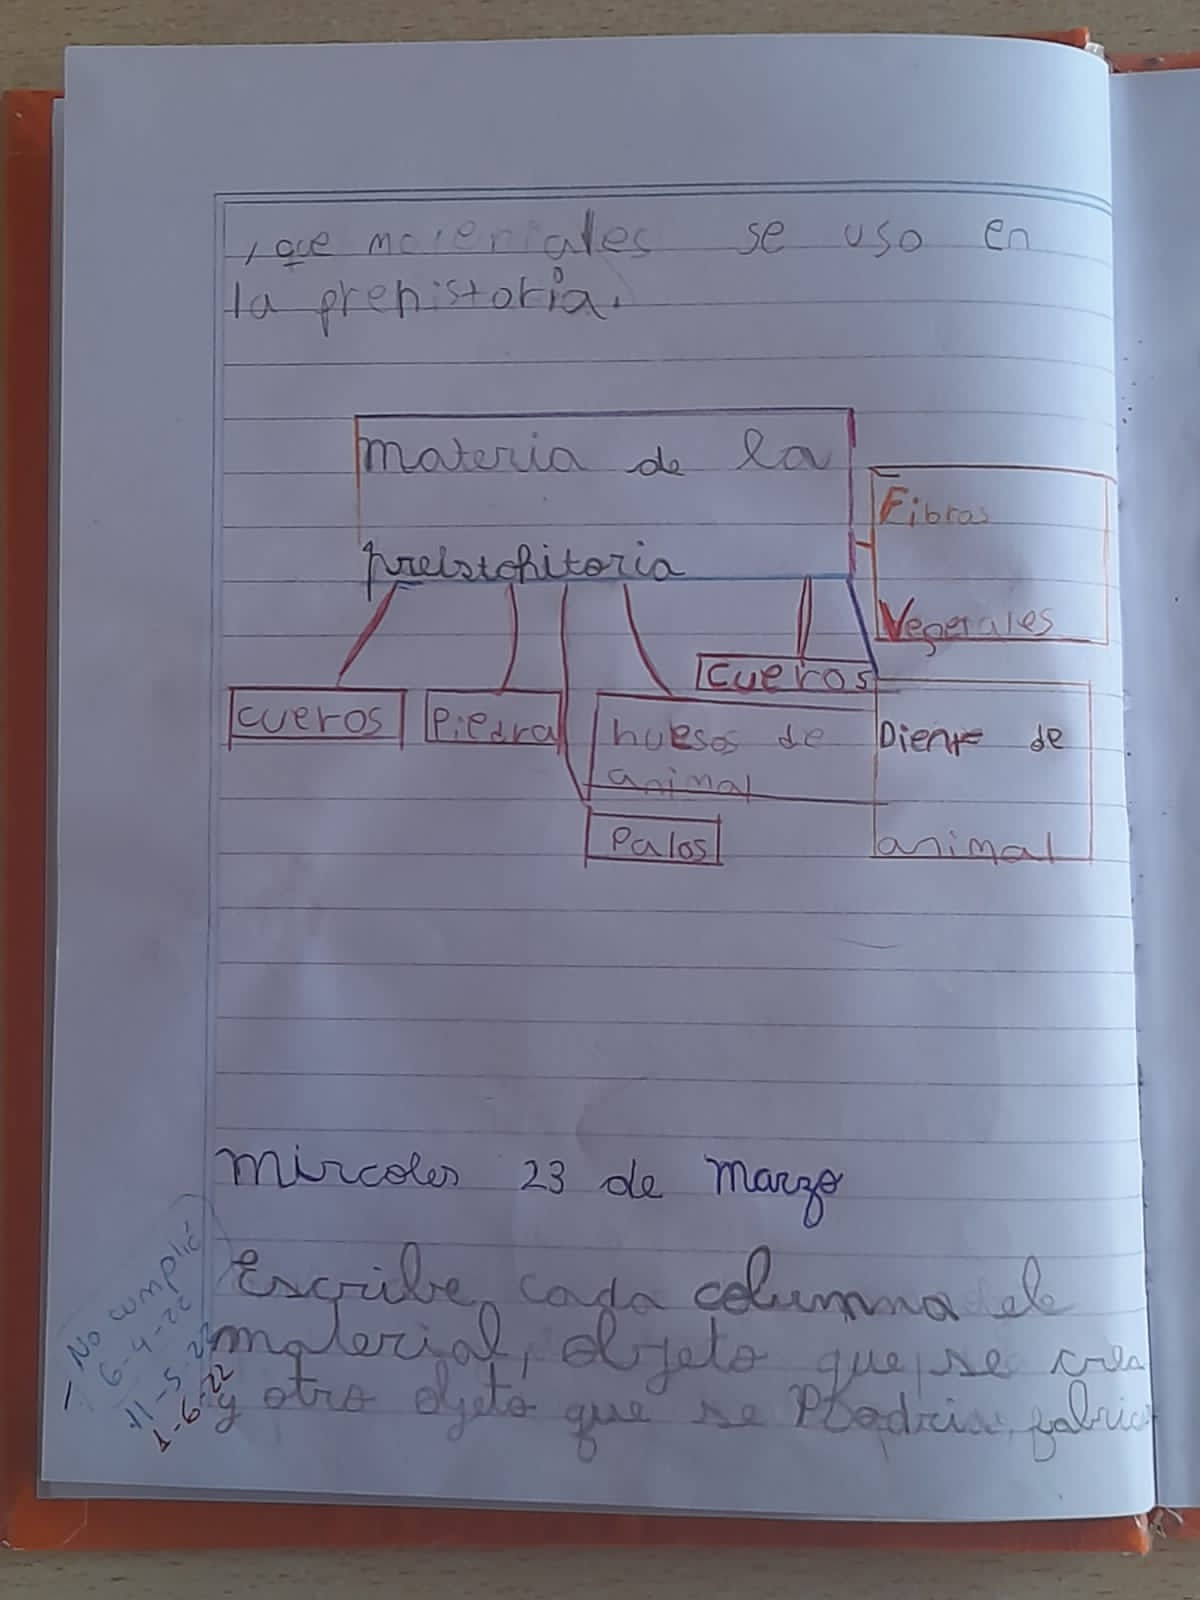 , que materiales se uso en
la prehistoria.
materia de la
preistohitoria
Fibras
Vegerales
cueros
cueros
Piedra
huesos de
animal
Diente de
animal
Palos
Mircoles 23 de Marzo
Escribe cada columna el
material, objeto que se crea
y otro objeto que se
- No cumplió
6-4-22
11-5-22
1-6-22